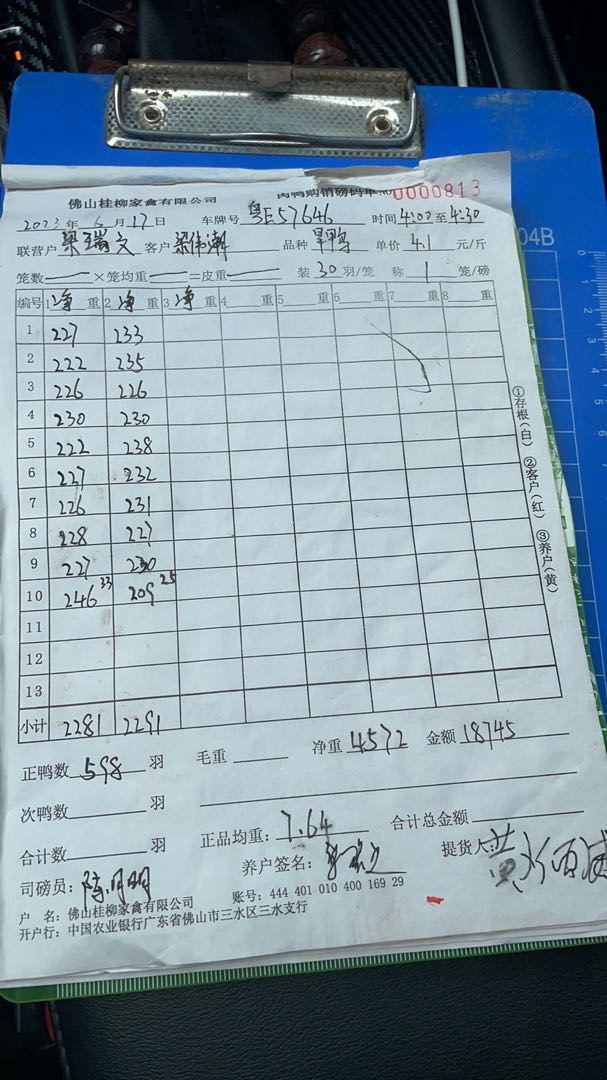 佛山桂柳家禽有限公司 肉鸭购销磅码单 NO 0000813
2023年6月17日 车牌号 粤E57646 时间 4:00至4:30
联营户 梁瑞文 客户 梁伟潮 品种 旱鸭 单价 4.1 元/斤
笼数 — ×笼均重 — =皮重 — 装 30 羽/笼 称 1 笼/磅
编号 1 净 重 2 净 重 3 净 重 4 重 5 重 6 重 7 重 8 重
1 227 233
2 222 235
3 226 226
4 230 230
5 222 238
6 227 232
7 226 231
8 228 227
9 227 230
10 246 33 209 25
11
12
13
小计 2281 2291
正鸭数 598 羽 毛重 净重 4572 金额 18745
次鸭数 羽
合计数 羽 正品均重: 7.64 合计总金额
司磅员: 陈月明 养户签名: 提货人: 黄
户 名: 佛山桂柳家禽有限公司 账号: 444 401 010 400 169 29
开户行: 中国农业银行广东省佛山市三水区三水支行
①存根(白) ②客户(红) ③养户(黄)
04B
0 1 2 3 4 5